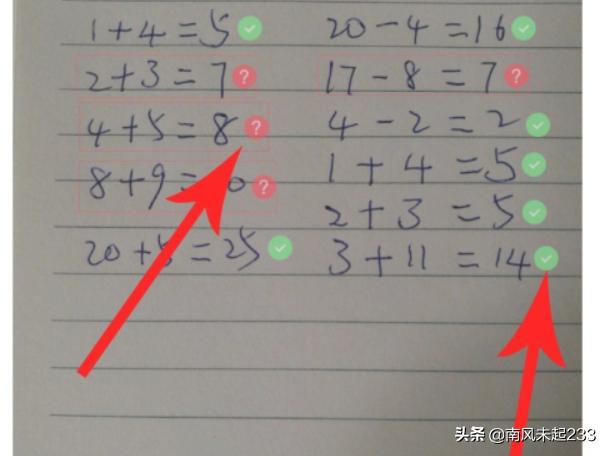 1+4=5
2+3=7
4+5=8
8+9=
20+5=25
20-4=16
17-8=7
4-2=2
1+4=5
2+3=5
3+11=14
头条 @南风未起233